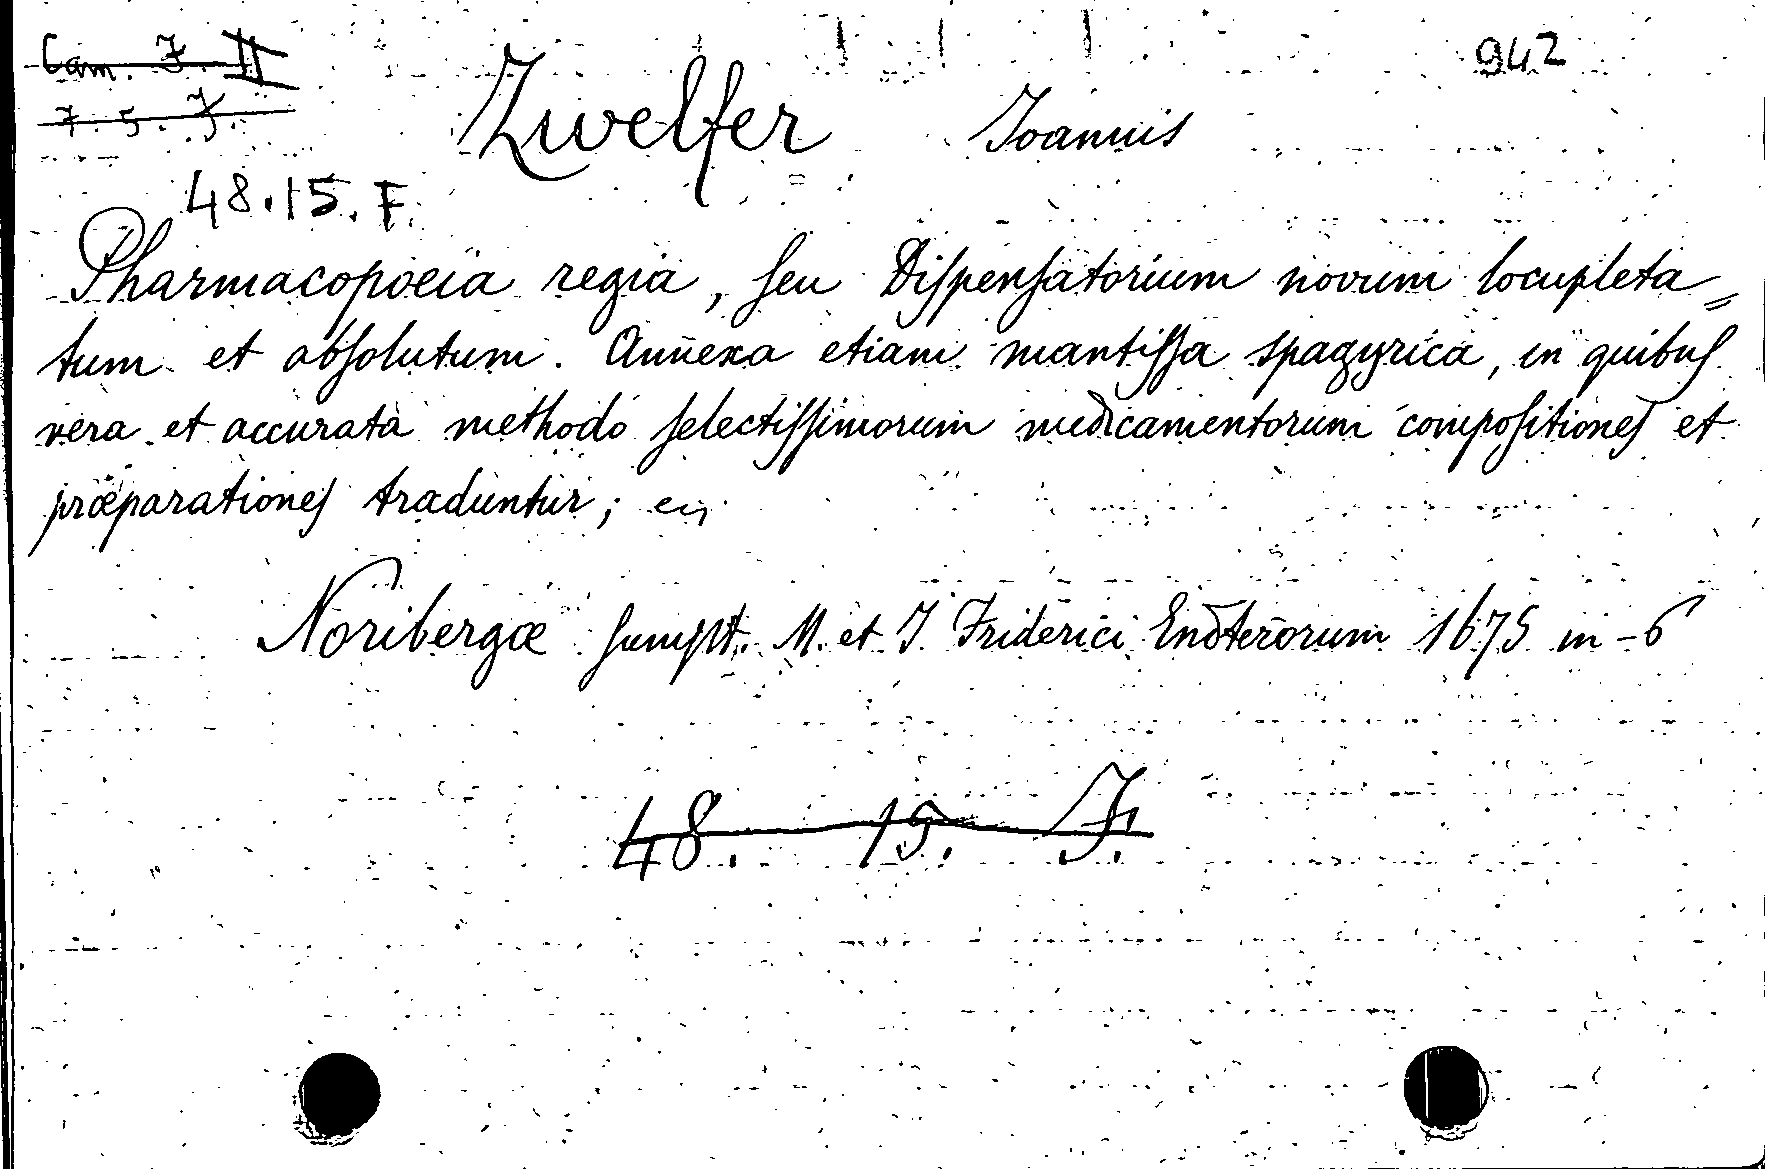 Cam. J. II
942
7. 5. J.
Zwelfer Joannis
48.15.F.
Pharmacopoeia regia, seu Dispensatorium novum locupleta=
tum et absolutum. Annexa etiam mantissa spagyrica, in quibus
vera et accurata methodo selectissimorum medicamentorum compositiones et
præparationes traduntur;
Noribergæ sumpt. M. et J. Friderici Endterorum 1675 in-6
48. 15. F.